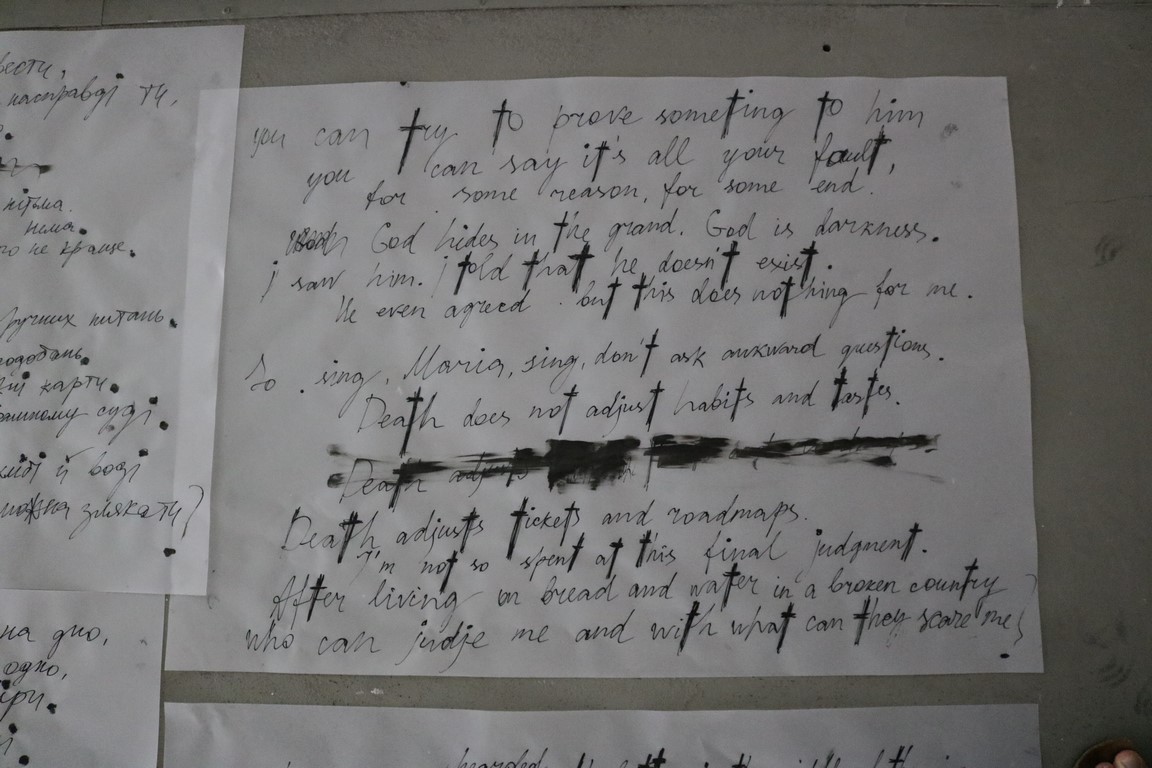 you can try to prove someting to him
you can say it's all your fault,
for some reason, for some end.
God hides in the grand. God is darkness.
i saw him. I told that he doesn't exist.
He even agreed. but this does nothing for me.
So sing, Maria, sing, don't ask awkward questions.
Death does not adjust habits and tastes.
Death
Death adjusts tickets and roadmaps.
I'm not so spent at this final judgment.
After living on bread and water in a broken country
who can judje me and with what can they scare me)
вести,
насправді ти,
пітьма.
нема.
го не краще.
ручних питань.
карти.
суді.
й воді
можна злякати)
на дно,
одно,